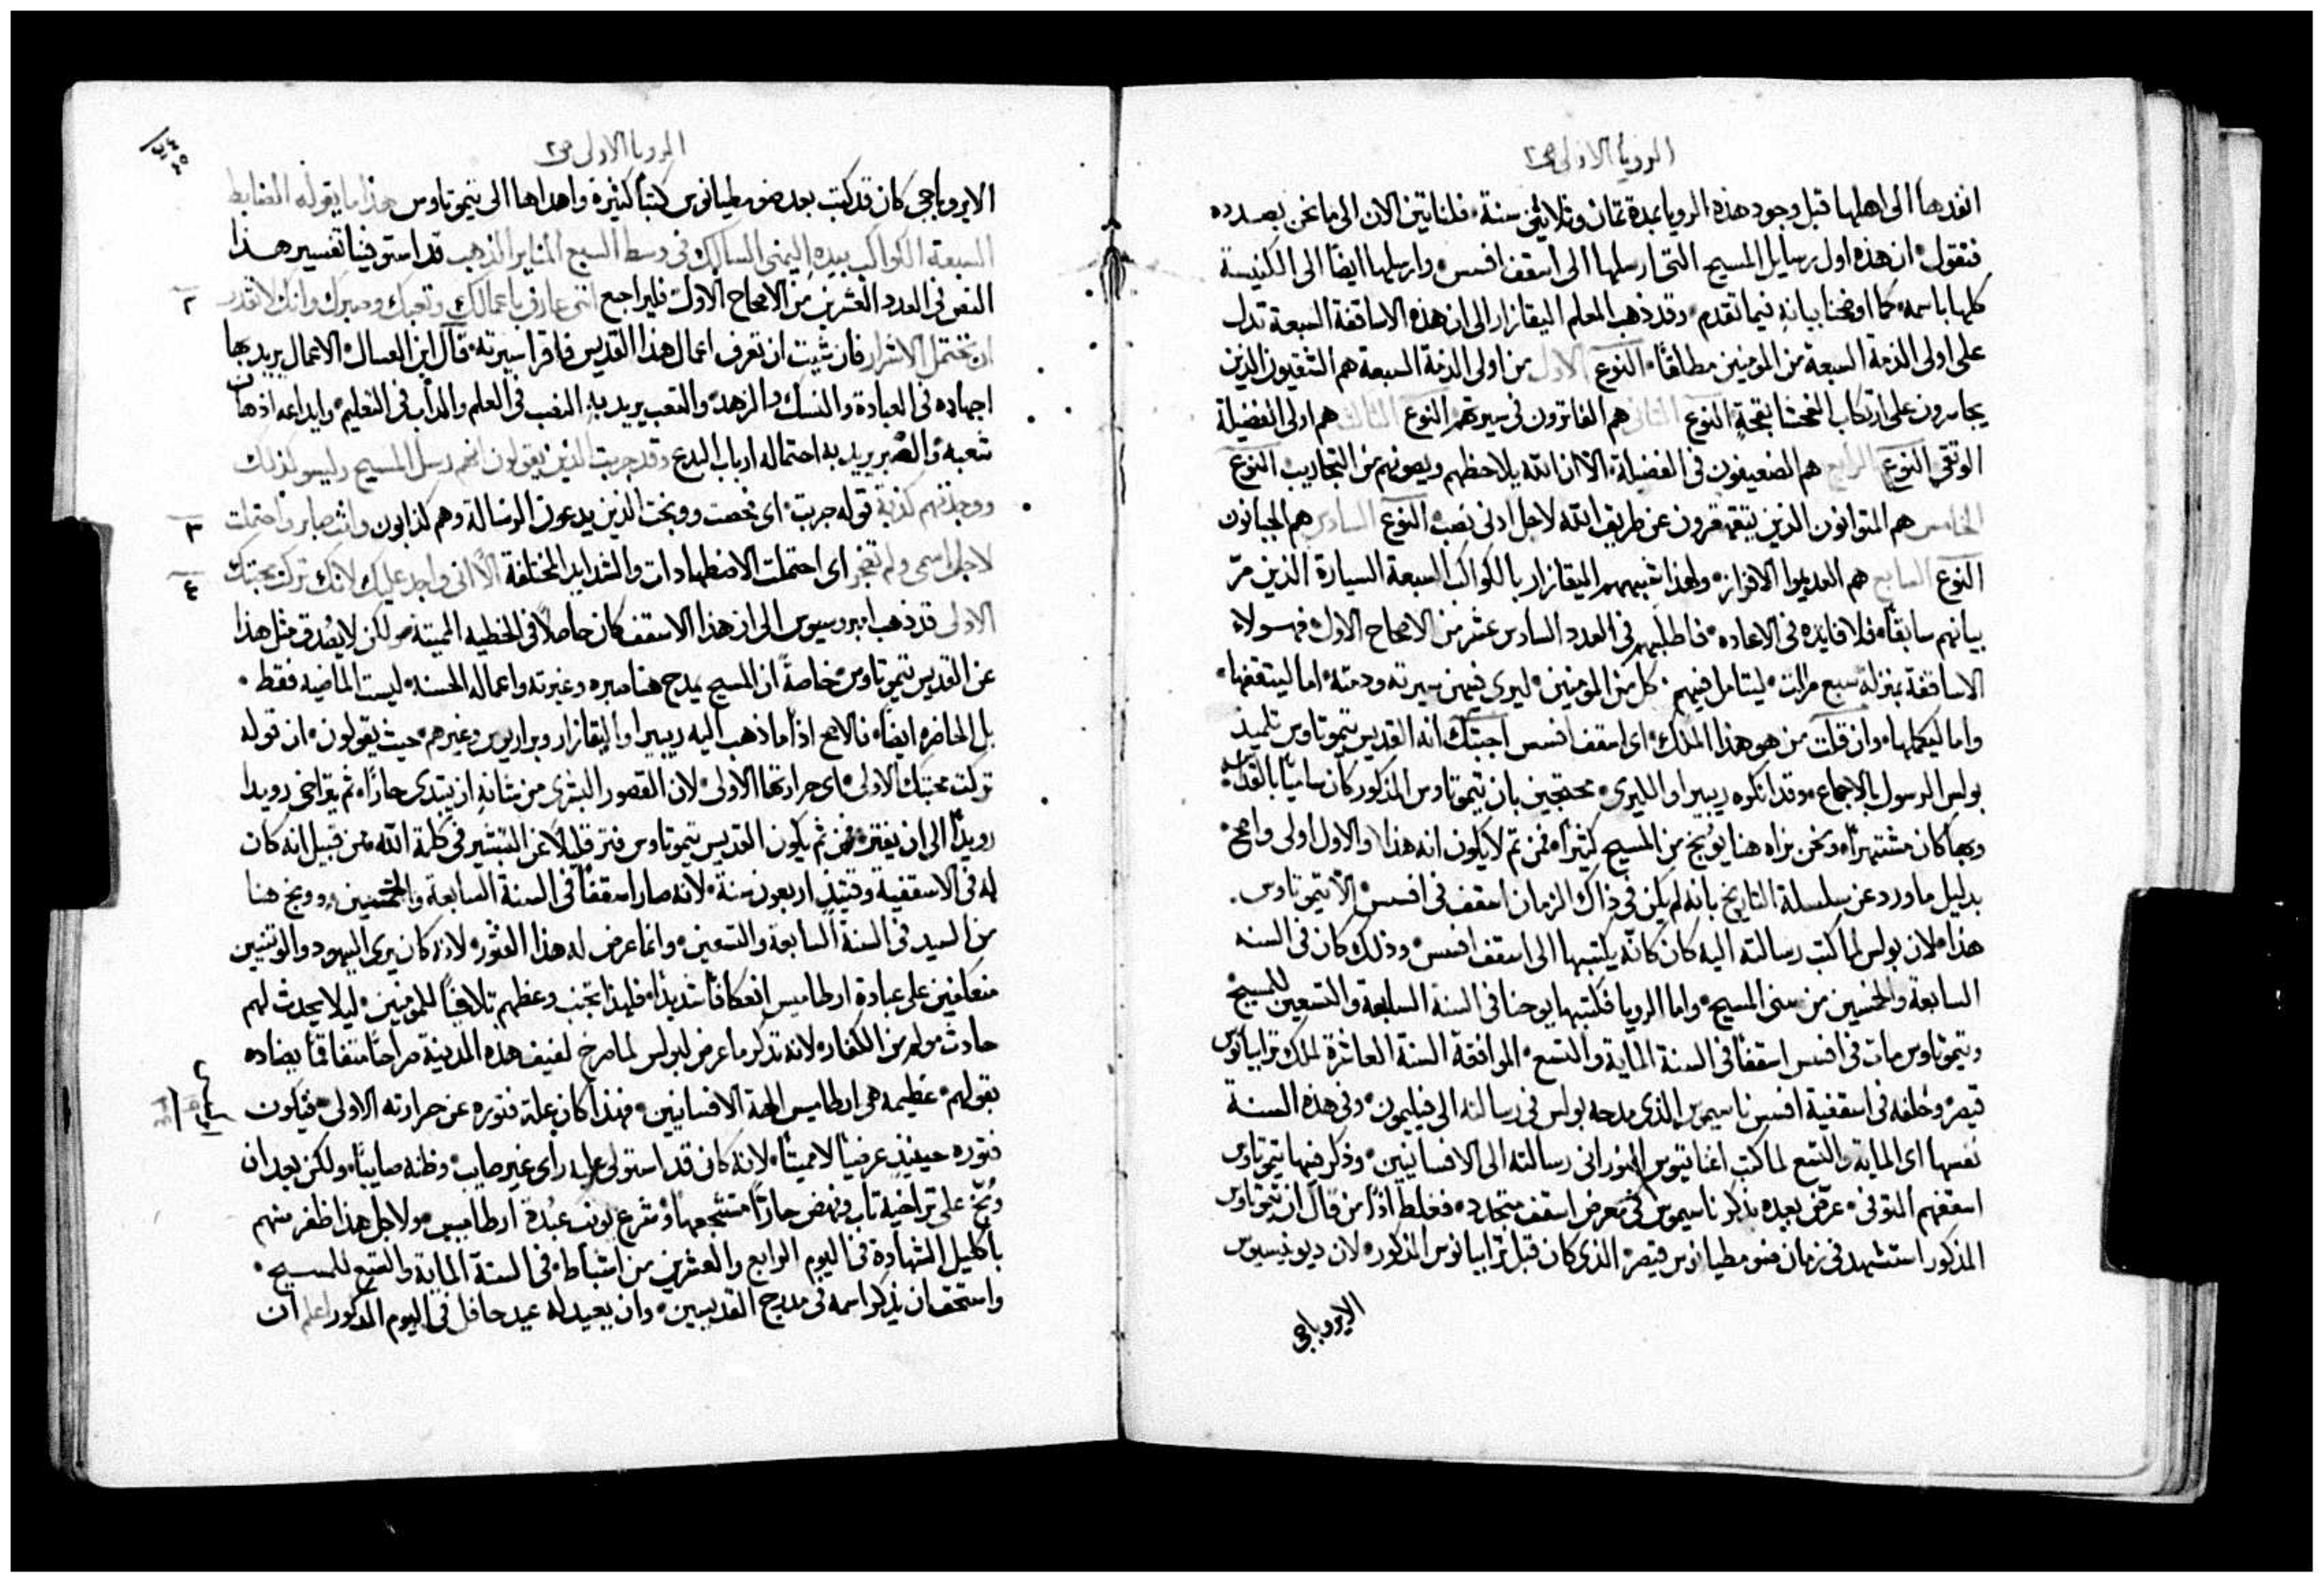 الرويا الاولى ص٢
انفدها الى اهلها قبل وجود هذه الرويا بمدة ثمان وثلاثين سنة، فلناتين الان الى ما نحن بصدده
فنقول، ان هذه اول رسايل المسيح التى ارسلها الى اسقف افسس، وارسلها ايضا الى الكنيسة
كلها باسمه، كما اوضحنا بيانه فيما تقدم، وقد ذهب المعلم اليقازار الى ان هذه الاساقفة السبعة تدل
على اولى الذمة السبعة من المومنين مطلقا، النوع الاول من اولى الذمة السبعة هم الشقيون الذين
يجاسرون على ارتكاب الفحشا بقحة النوع الثانى هم الفاترون فى سيرتهم النوع الثالث هم اولى الفضيلة
الوثقى النوع الرابع هم الضعيفون فى الفضيلة، الا ان الله يلاحظهم ويصونهم من التجاريب النوع
الخامس هم المتوانون الذين يتقهقرون عن طريق الله لاجل ادنى نصب النوع السادس هم الجبانون
النوع السابع هم العديموا الافراز، ولهذا شبههم اليقازار بالكواكب السبعة السيارة الذين مرّ
بيانهم سابقا، فلا فايده فى الاعاده، فاطلبهم فى العدد السادس عشر من الاصحاح الاول، فهولاء
الاساقفة بمنزلة سبع مرات، ليتامل فيهم كل من المومنين، ليرى فيهن سيرته وذمته، اما ليثقفها،
واما ليكملها، وان قلت من هو هذا الملك، اى اسقف افسس اجبتك انه القديس تيموتاوس تلميذ
بولس الرسول بالاجماع، وقد انكره ريبيرا والليرى، محتجين بان تيموتاوس المذكور كان ساميا بالقداسة
وبها كان مشتهرا، ونحن نراه هنا يوبخ من المسيح كثيرا، فمن ثم لا يكون انه هذا، والاول اولى واصح،
بدليل ما ورد عن سلسلة التاريخ بانه لم يكن فى ذاك الزمان اسقف فى افسس الا تيموتاوس.
هذا، ولان بولس لما كتب رسالته اليه كان كانه يكتبها الى اسقف افسس، وذلك كان فى السنه
السابعة والخمسين من سنى المسيح، واما الرويا فكتبها يوحنا فى السنة السابعة والتسعين للمسيح
وتيموتاوس مات فى افسس اسقفا فى السنة الماية والتسع، الموافقة السنة العاشرة لملك ترايانوس
قيصر، وخلفه فى اسقفية افسس ناسيموس الذى مدحه بولس فى رسالته الى فيليمون، وفى هذه السنة
نفسها اى الماية والتسع لما كتب اغناتيوس النورانى رسالته الى الافسانيين، وذكر فيها تيموتاوس
اسقفهم المتوفى، عرّض بعده بذكر ناسيموس فى معرض اسقف متجدد، فغلط اذا من قال ان تيموتاوس
المذكور استشهد فى زمان ضومطيانوس قيصر، الذى كان قبل ترايانوس المذكور، لان ديونيسيوس
الايروباجى
الرويا الاولى ص٢
الايروباجى كان قد كتب بعد ضومطيانوس كتبا كثيرة واهداها الى تيموتاوس هذا ما يقوله الضابط
السبعة الكواكب بيده اليمنى السالك فى وسط السبع المناير الذهب قد استوفينا تفسير هذا
النص فى العدد العشرين من الاصحاح الاول، فليراجع انى عارف باعمالك وتعبك وصبرك وانك لا تقدر
٢
ان تحتمل الاشرار فان شيت ان تعرف اعمال هذا القديس فاقرا سيرته، قال ابن العسال، الاعمال يريد بها
اجهاده فى العبادة والنسك والزهد، والتعب يريد به النصب فى العلم والداب فى التعليم، وايداعه اذهان
شعبه، والصبر يريد به احتماله ارباب البدع وقد جربت الذين يقولون انهم رسل المسيح وليسو كذلك
ووجدتهم كذبة قوله جربت، اى فحصت ووبخت الذين يدعون الرسالة وهم كذابون وانت صابر واحتملت
٣
لاجل اسمى ولم تضجر اى احتملت الاضطهادات والشدايد المختلفة الا انى واجد عليك لانك تركت محبتك
٤
الاولى قد ذهب امبروسيوس الى ان هذا الاسقف كان حاصلا فى الخطيه المميتة، ولكن لا يصدق مثل هذا
عن القديس تيموتاوس، خاصة ان المسيح يمدح هنا صبره وغيرته واعماله الحسنة، ليست الماضيه فقط.
بل الحاضره ايضا، فالاصح اذا ما ذهب اليه ريبيرا واليقازار وبراريوس وغيرهم، حيث يقولون، ان قوله
تركت محبتك الاولى، اى حرارتها الاولى، لان القصور البشرى من شانه ان يبتدى حارا، ثم يتراخى رويدا
رويدا الى ان يفتر، فمن ثم يكون القديس تيموتاوس فتر قليلا عن التبشير فى كلمة الله، من قبيل انه كان
له فى الاسقفية وقتيذ اربعون سنة، لانه صار اسقفا فى السنة السابعة والخمسين، ووبخ هنا
من السيد فى السنة السابعة والتسعين، وانما عرض له هذا الفتور، لانه كان يرى اليهود والوتنيين
منعكفين على عبادة ارطاميس انعكافا شديدا، فلهذا تجنب وعظهم تلافيا للمومنين، ليلا يحدث لهم
حادث مولم من الكفار، لانه تذكر ما عرض لبولس لما صرخ لفيف هذه المدينة صراخا متفاقما بضاده
بقولهم، عظيمه هى ارطاميس الهة الافسانيين، فهذا كان علة فتوره عن حرارته الاولى، فيكون
فتوره حينيذ عرضيا لا مميتا، لانه كان قد استولى عليه راى غير صايب، وظنه صايبا، ولكن بعد ان
وُبّخ على تراخيه تاب، ونهض حارا متشجعا، وشرع يونب عبدة ارطاميس، ولاجل هذا ظفر منهم
باكليل الشهادة فى اليوم الرابع والعشرين من اشباط، فى السنة الماية والتسع للمسيح،
واستحق ان يذكر اسمه فى مدرج القديسين، وان يعيد له عيد حافل فى اليوم المذكور اعلم ان